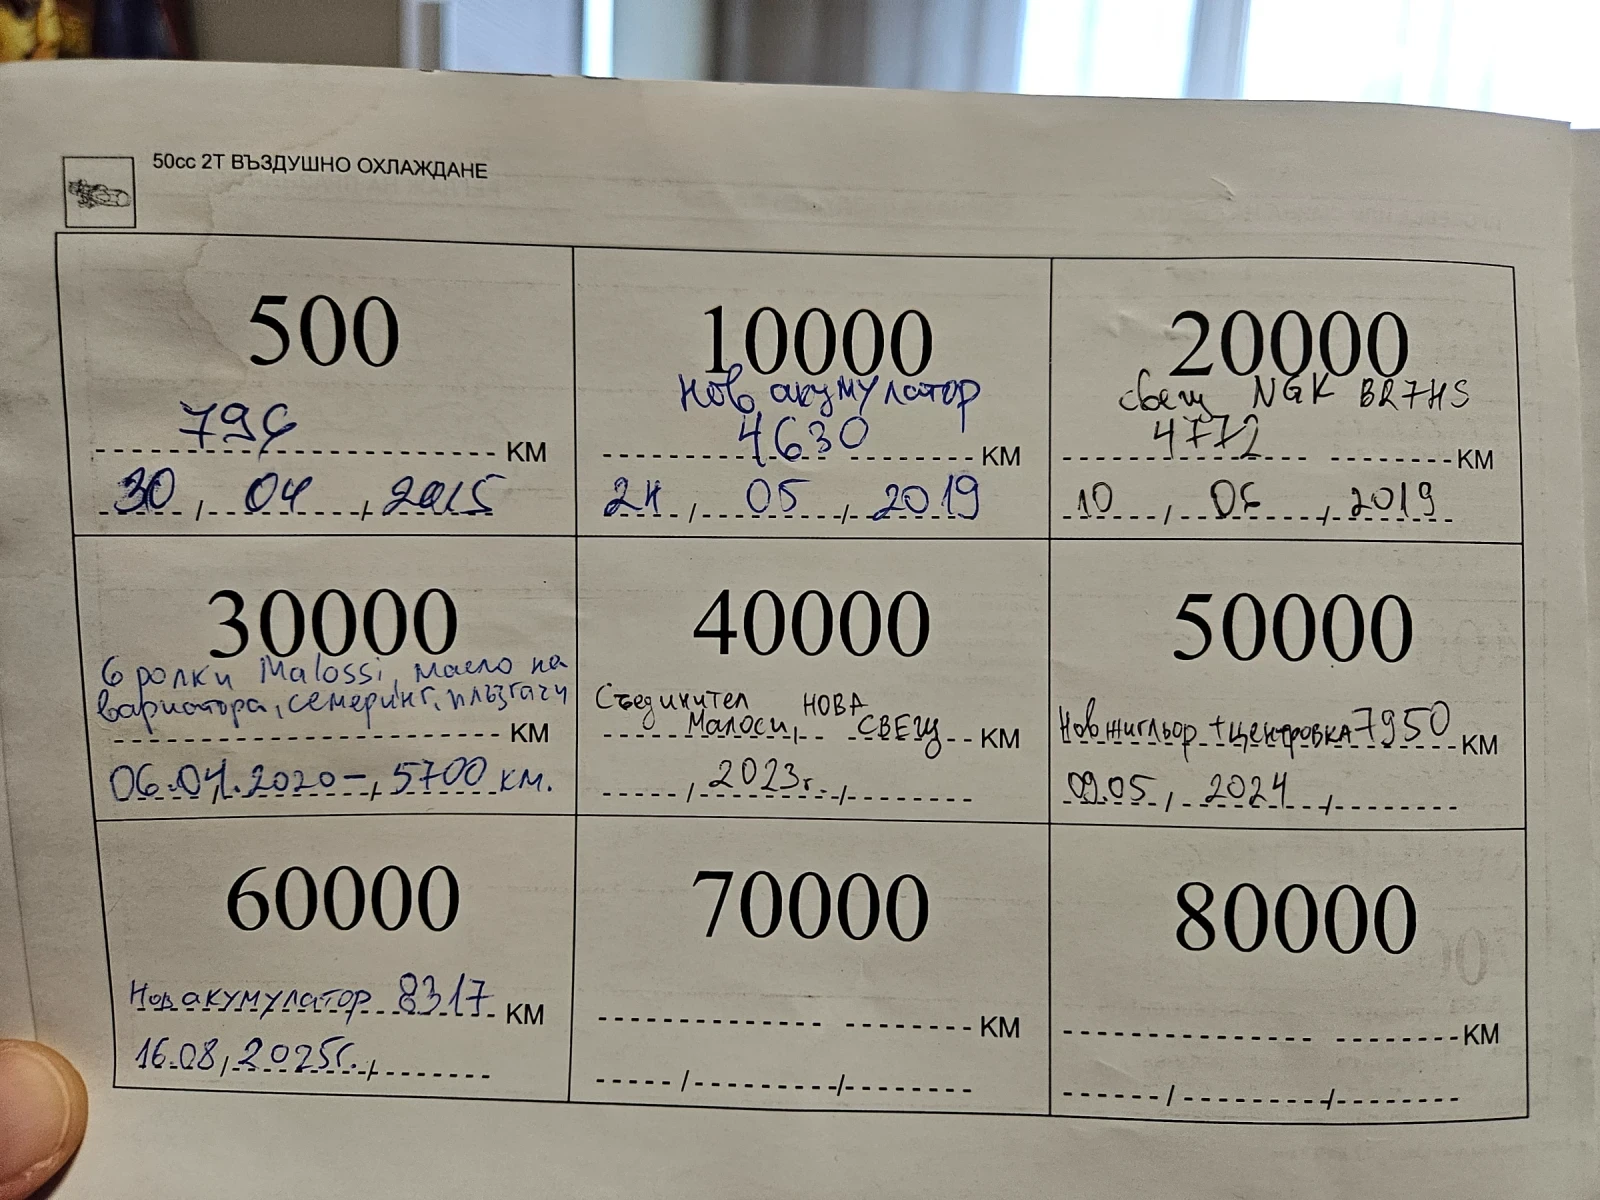 50cc 2T ВЪЗДУШНО ОХЛАЖДАНЕ
500
796
КМ
30 / 04 / 2015
10000
Нов акумулатор
4630
КМ
24 / 05 / 2019
20000
свещ NGK BR7HS
4772
КМ
10 / 06 / 2019
30000
6 ролки Malossi, масло на
вариатора, семеринг, плъзгачи
КМ
06.04.2020 – 5700 км.
40000
Съединител НОВА
Малоси, СВЕЩ
КМ
2023г.
50000
Нов жигльор + центровка 7950
КМ
09.05, 2024
60000
Нов акумулатор 8317
КМ
16.08, 2025г.
70000
КМ
80000
КМ